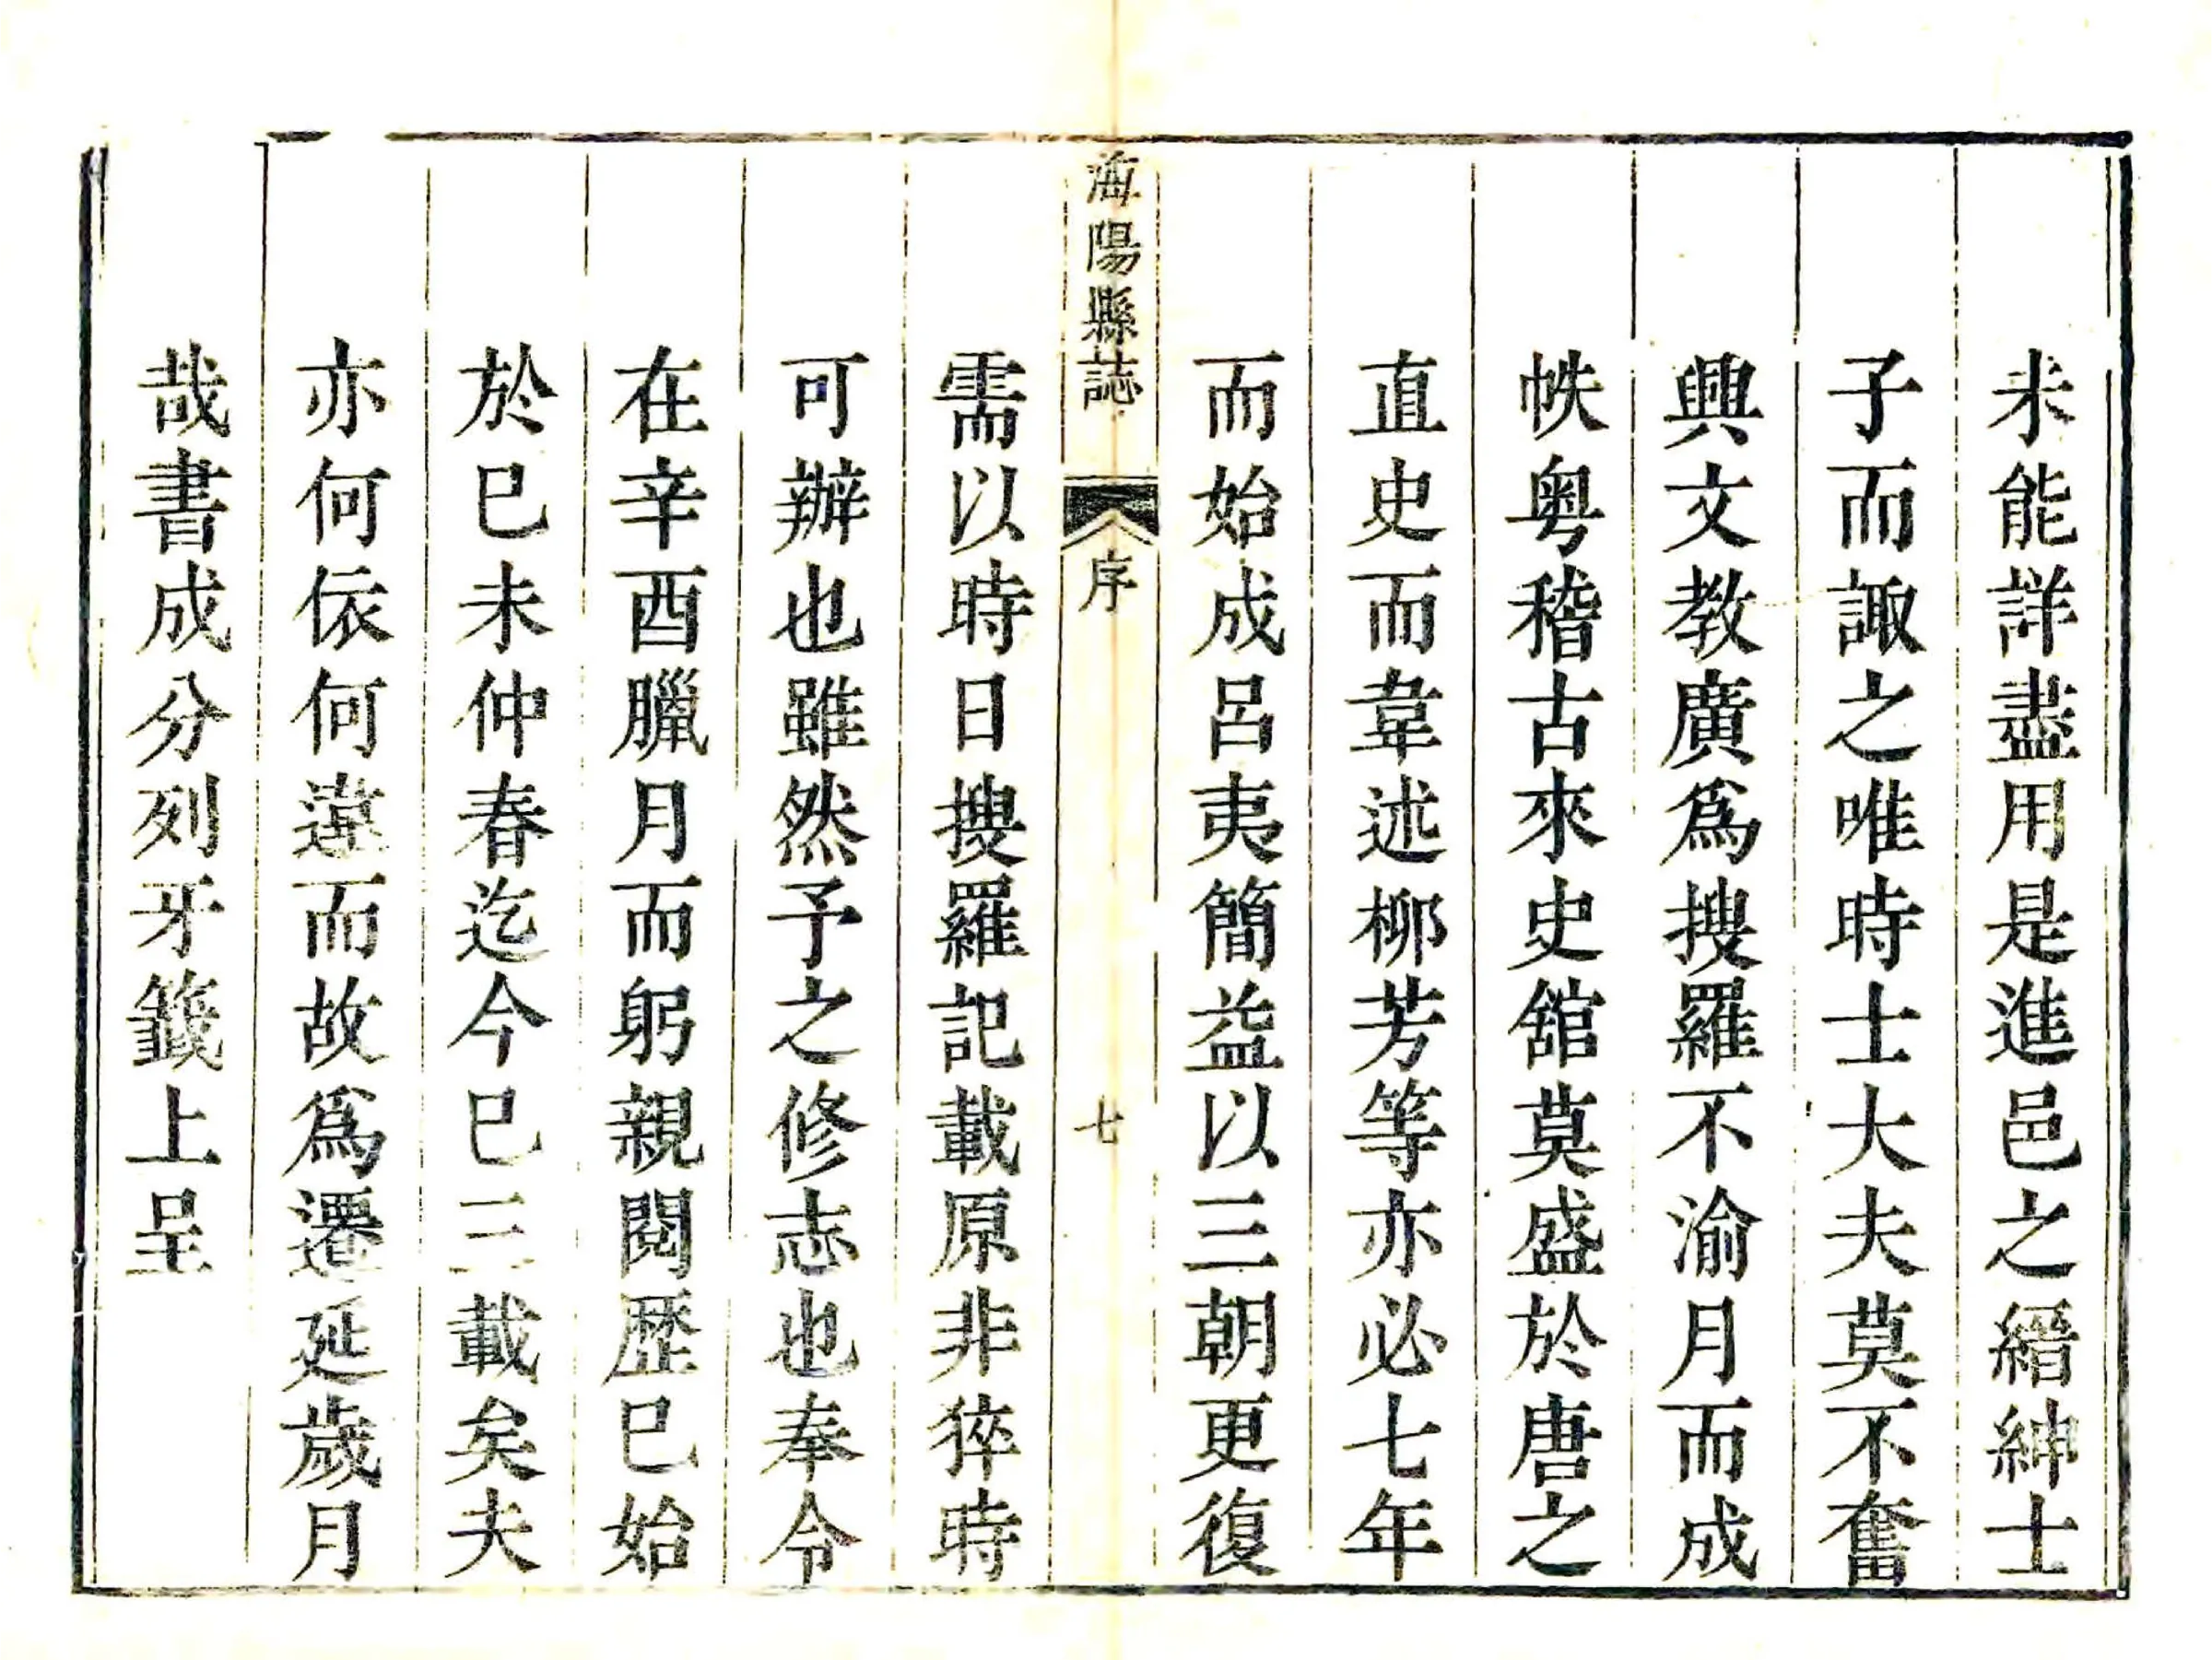 未能詳盡用是進邑之縉紳士
子而諏之唯時士大夫莫不奮
興文教廣爲搜羅不渝月而成
帙粤稽古來史舘莫盛於唐之
直史而韋述柳芳等亦必七年
而始成呂夷簡益以三朝更復
海陽縣誌
序
七
需以時日搜羅記載原非猝時
可辦也雖然予之修志也奉令
在辛酉臘月而躬親閱歷巳始
於巳未仲春迄今巳三載矣夫
亦何依何違而故爲遷延歲月
哉書成分列牙籤上呈